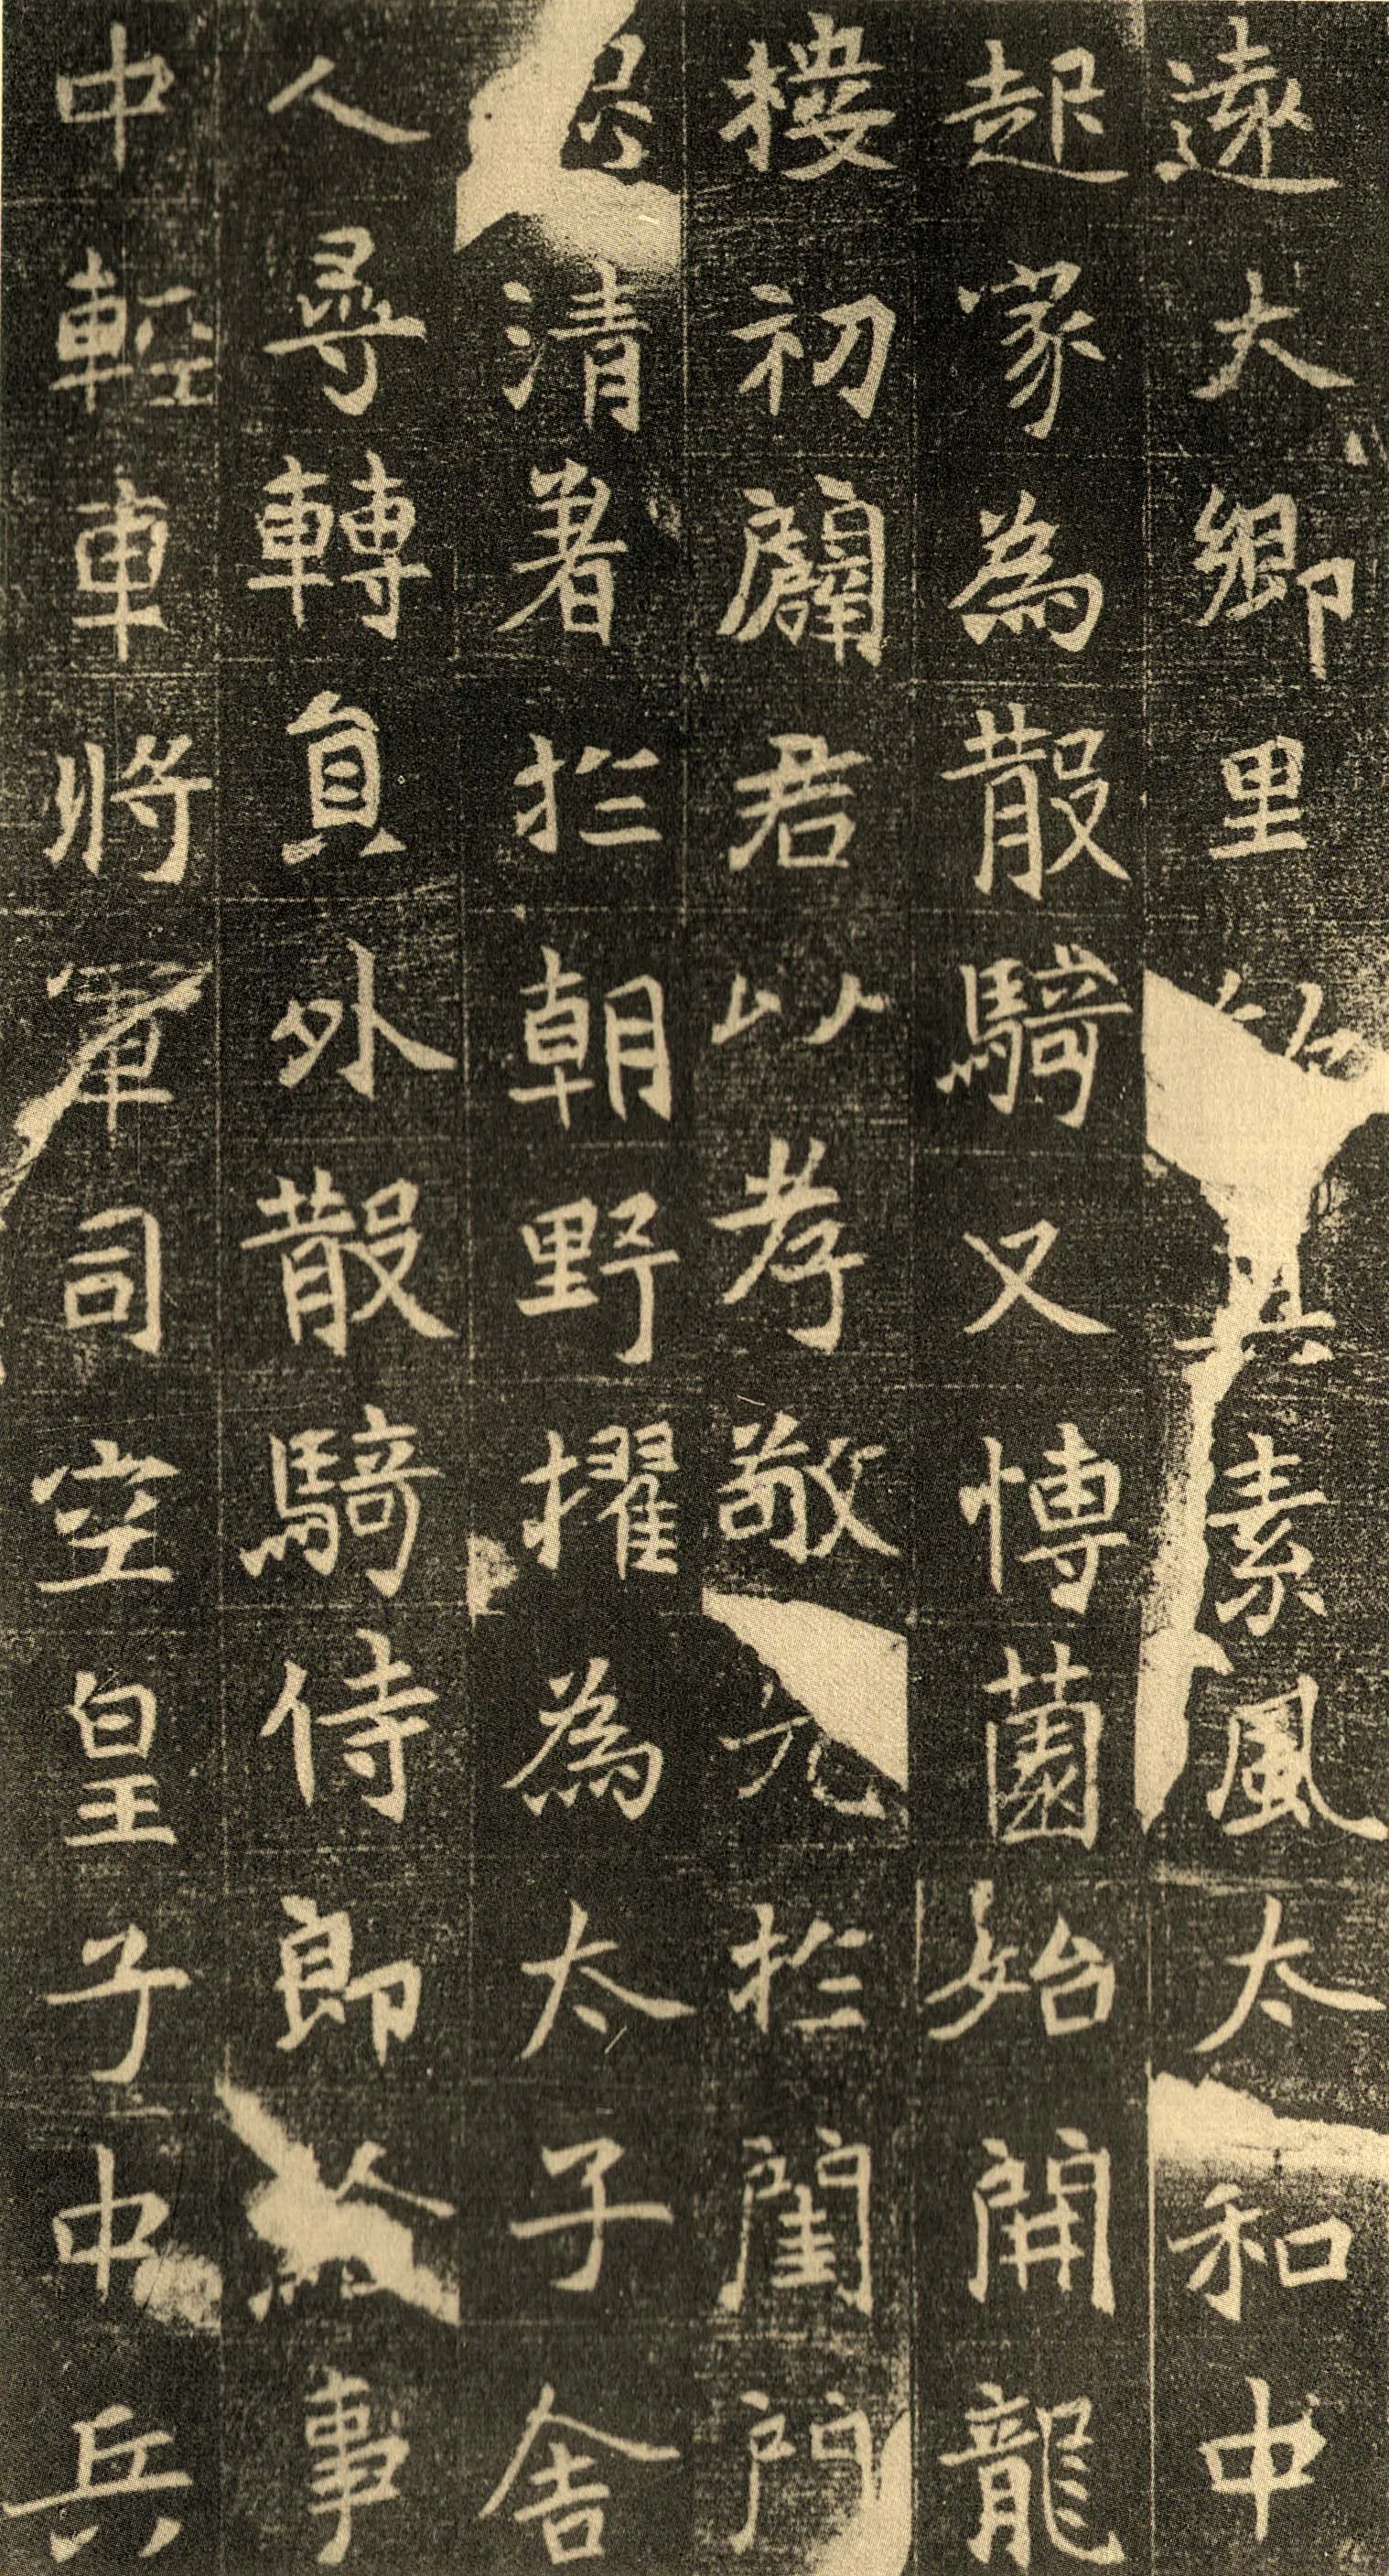 遠大鄉里其素風太和中
起家為散騎又愽薗始開龍
摟初闢君以孝敬光於閨門
清著於朝野擢為太子舍
人尋轉員外散騎侍郎事
中輕車將軍司空皇子中兵